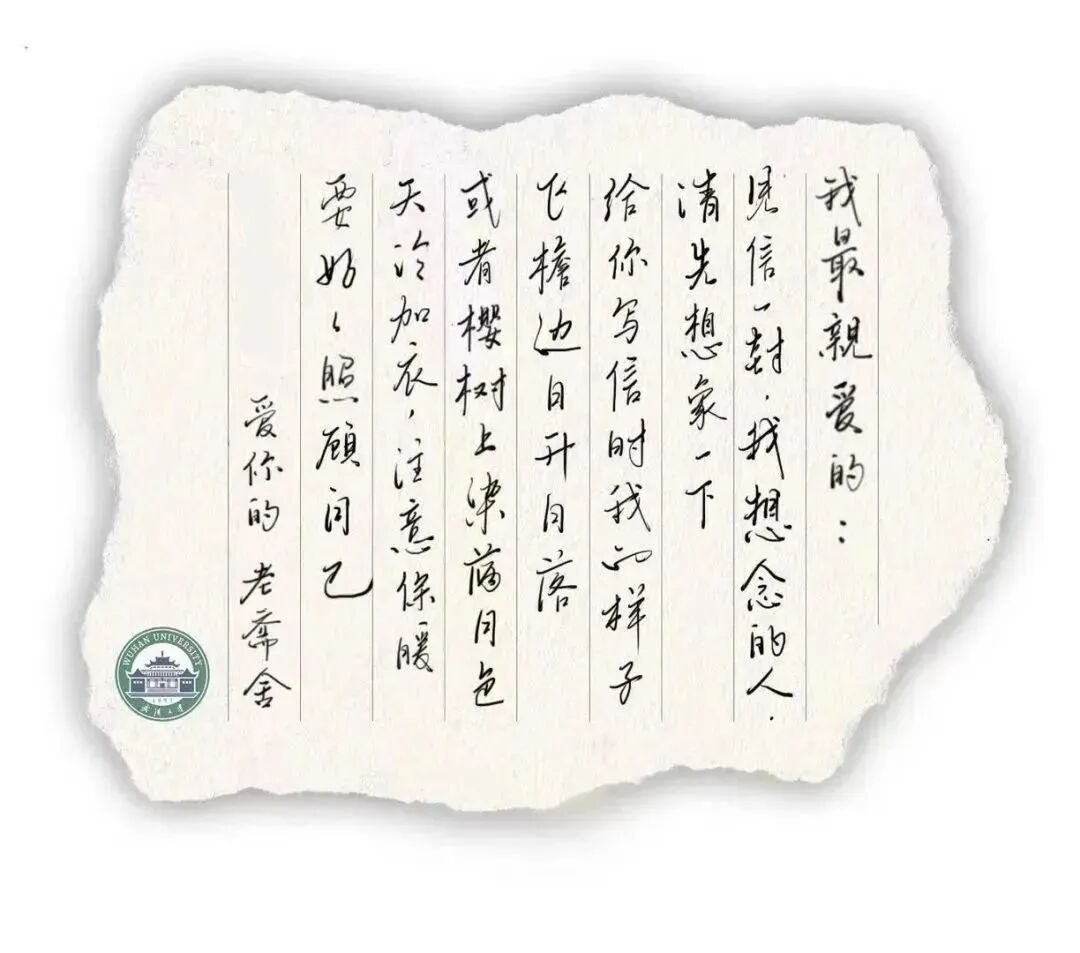 我最親爱的：
見信一封，我想念的人，
请先想象一下
给你写信时我的样子
飞檐边日升月落
或者樱树上染满月色
天冷加衣，注意保暖
要好々照顾自己
爱你的 老斋舍
WUHAN UNIVERSITY
1893
武漢大学